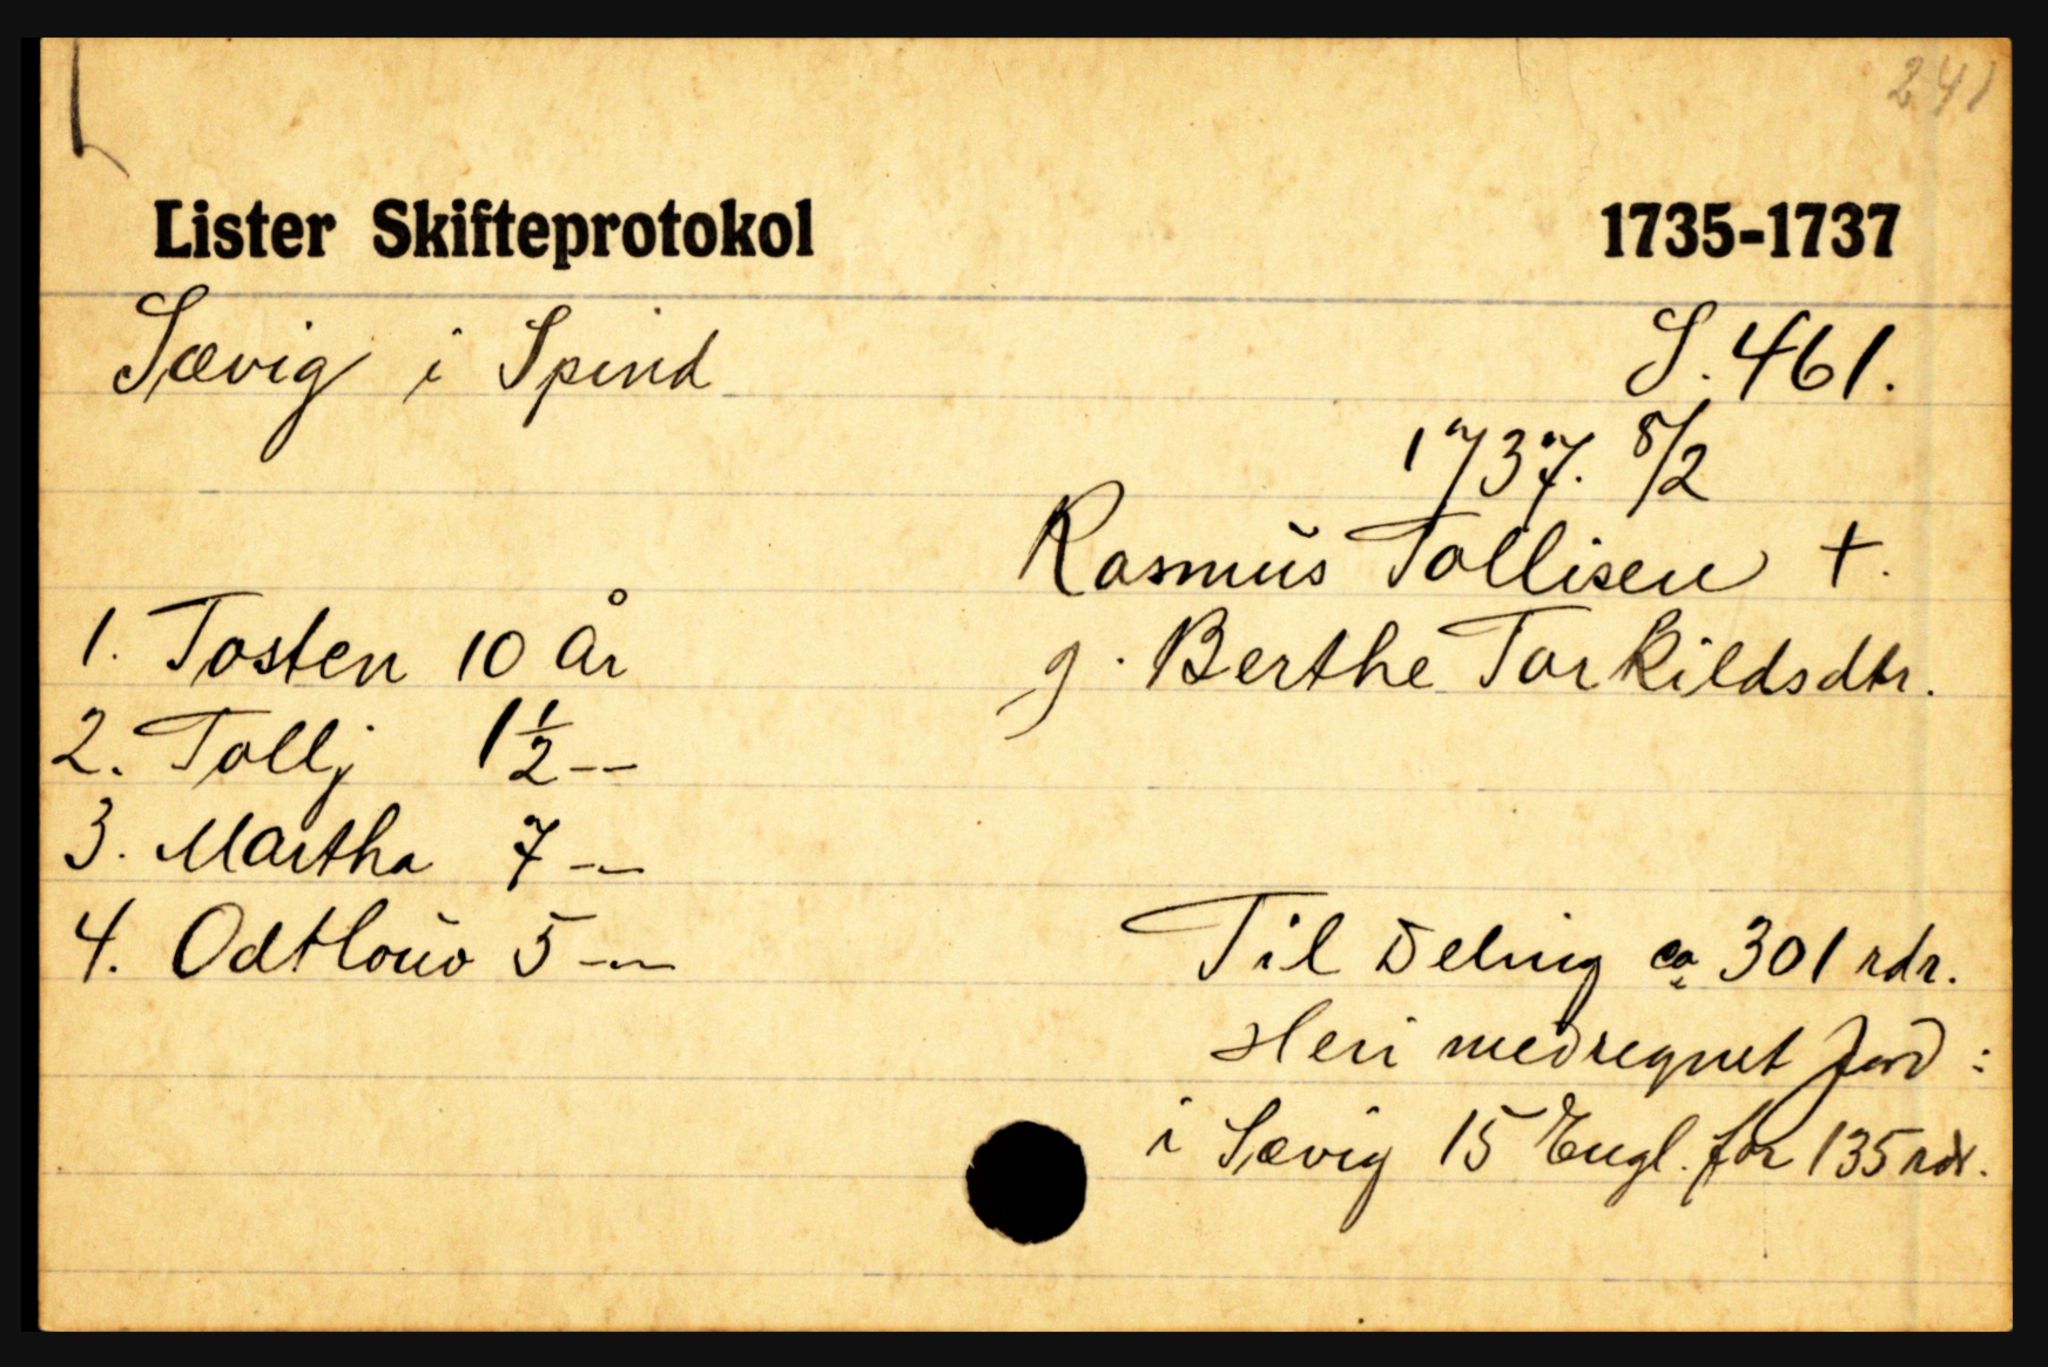 241
Lister Skifteprotokol 1735-1737
Sævig i Spind S. 461.
1737. 8/2
Rasmus Tollisen +.
1. Tosten 10 År g. Berthe Torkildsdtr.
2. Tollj 1 1/2 --
3. Martha 7 --
4. Odtlouv 5 -- Til Deling ca 301 rdr.
Heri medregnet Jord :
i Sævig 15 Engl. for 135 rdr.